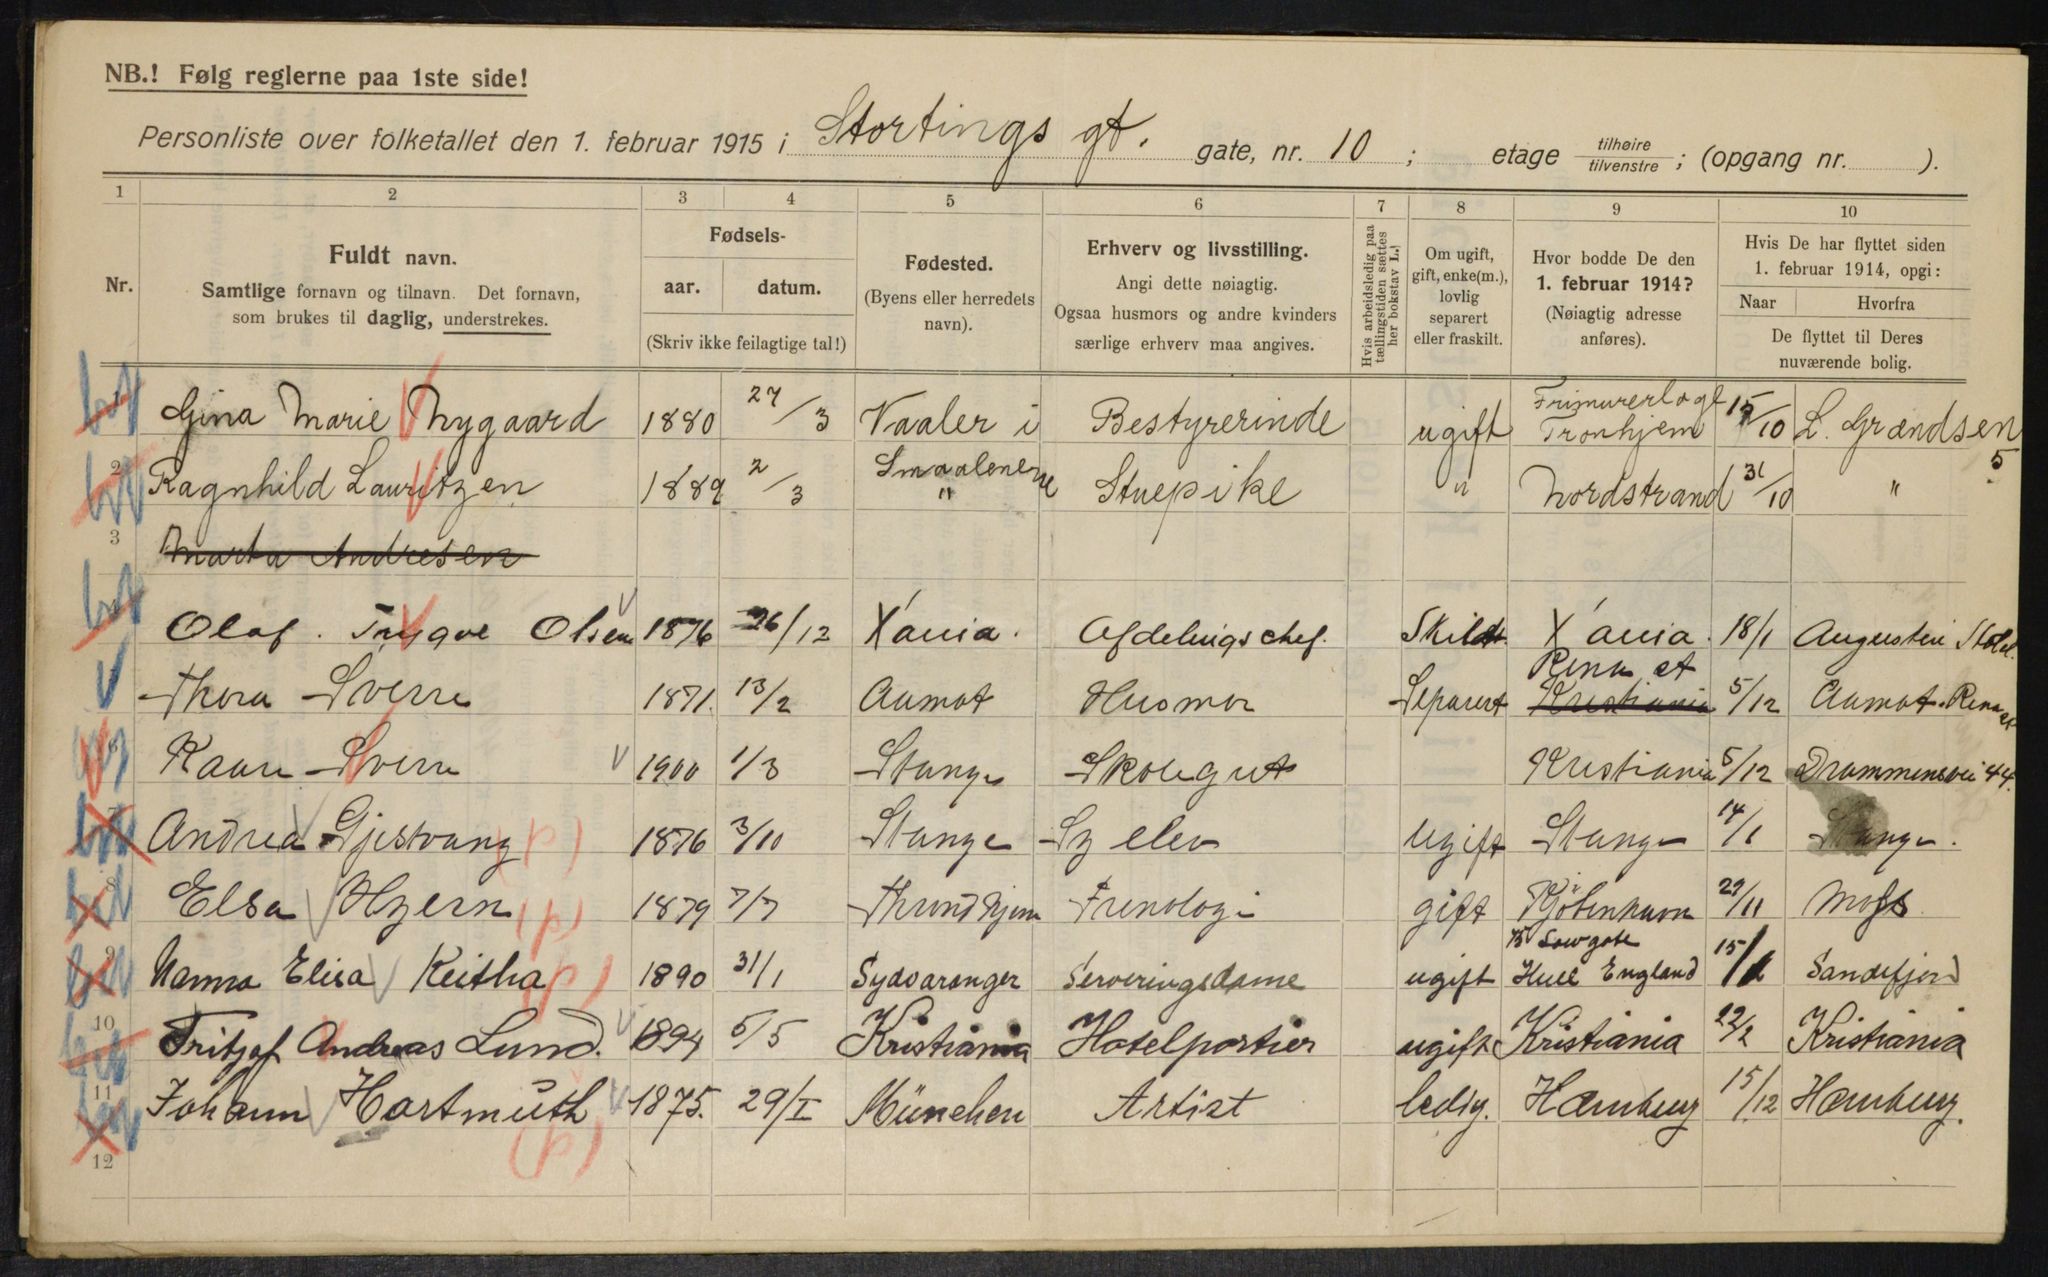 NB.! Følg reglerne paa 1ste side!
Personliste over folketallet den 1. februar 1915 i Stortings gt. gate, nr. 10 ; etage tilhøire/tilvenstre ; (opgang nr. ).
1 2 3 4 5 6 7 8 9 10
Nr.
Fuldt navn.
Samtlige fornavn og tilnavn. Det fornavn,
som brukes til daglig, understrekes.
Fødsels-
aar. datum.
(Skriv ikke feilagtige tal!)
Fødested.
(Byens eller herredets
navn).
Erhverv og livsstilling.
Angi dette nøiagtig.
Ogsaa husmors og andre kvinders
særlige erhverv maa angives.
Hvis arbeidsledig paa
tællingstiden sættes
her bokstav L.
Om ugift,
gift, enke(m.),
lovlig
separert
eller fraskilt.
Hvor bodde De den
1. februar 1914?
(Nøiagtig adresse
anføres).
Hvis De har flyttet siden
1. februar 1914, opgi:
Naar Hvorfra
De flyttet til Deres
nuværende bolig.
1 Gina Marie Nygaard 1880 27/3 Vaaler i Smaalenene Bestyrerinde ugift Frimurerloge Tronhjem 15/10 L. Grændsen 5
2 Ragnhild Lauritzen 1889 2/3 " Stuepike " Nordstrand 31/10 "
3 Marta Andresen
4 Olaf. Trygve Olsen 1876 26/12 X'ania. Afdelingschef. Skildt. X'ania. 18/1 Augustin Hotel.
Thora Sverre 1871. 13/2 Aamot Husmor Separert Rena st Kristiania 5/12 Aamot. Rena st
6 Kaare Sverre 1900 1/3 Stange Skolegut Kristiania 5/12 Drammensvei 44.
7 Andrea Gjestvang 1876 3/10 Stange Sy elev Ugift Stange 14/1 Stange.
8 Elsa Hzern 1879 7/7 Throndhjem Frenologi gift Kjöbenhavn 29/11 Moss
9 Nanna Elisa Keitha 1890 31/1 Sydvaranger Serveringsdame ugift 75 Lowgate Hull England 15/1 Sandefjord
10 Fritjof Andreas Lund. 1894 5/5 Kristiania Hotelportier ugift Kristiania 22/2 Kristiania
11 Johann Hartmuth 1875. 29/I München Artist ledig. Hamburg 15/12 Hamburg.
12